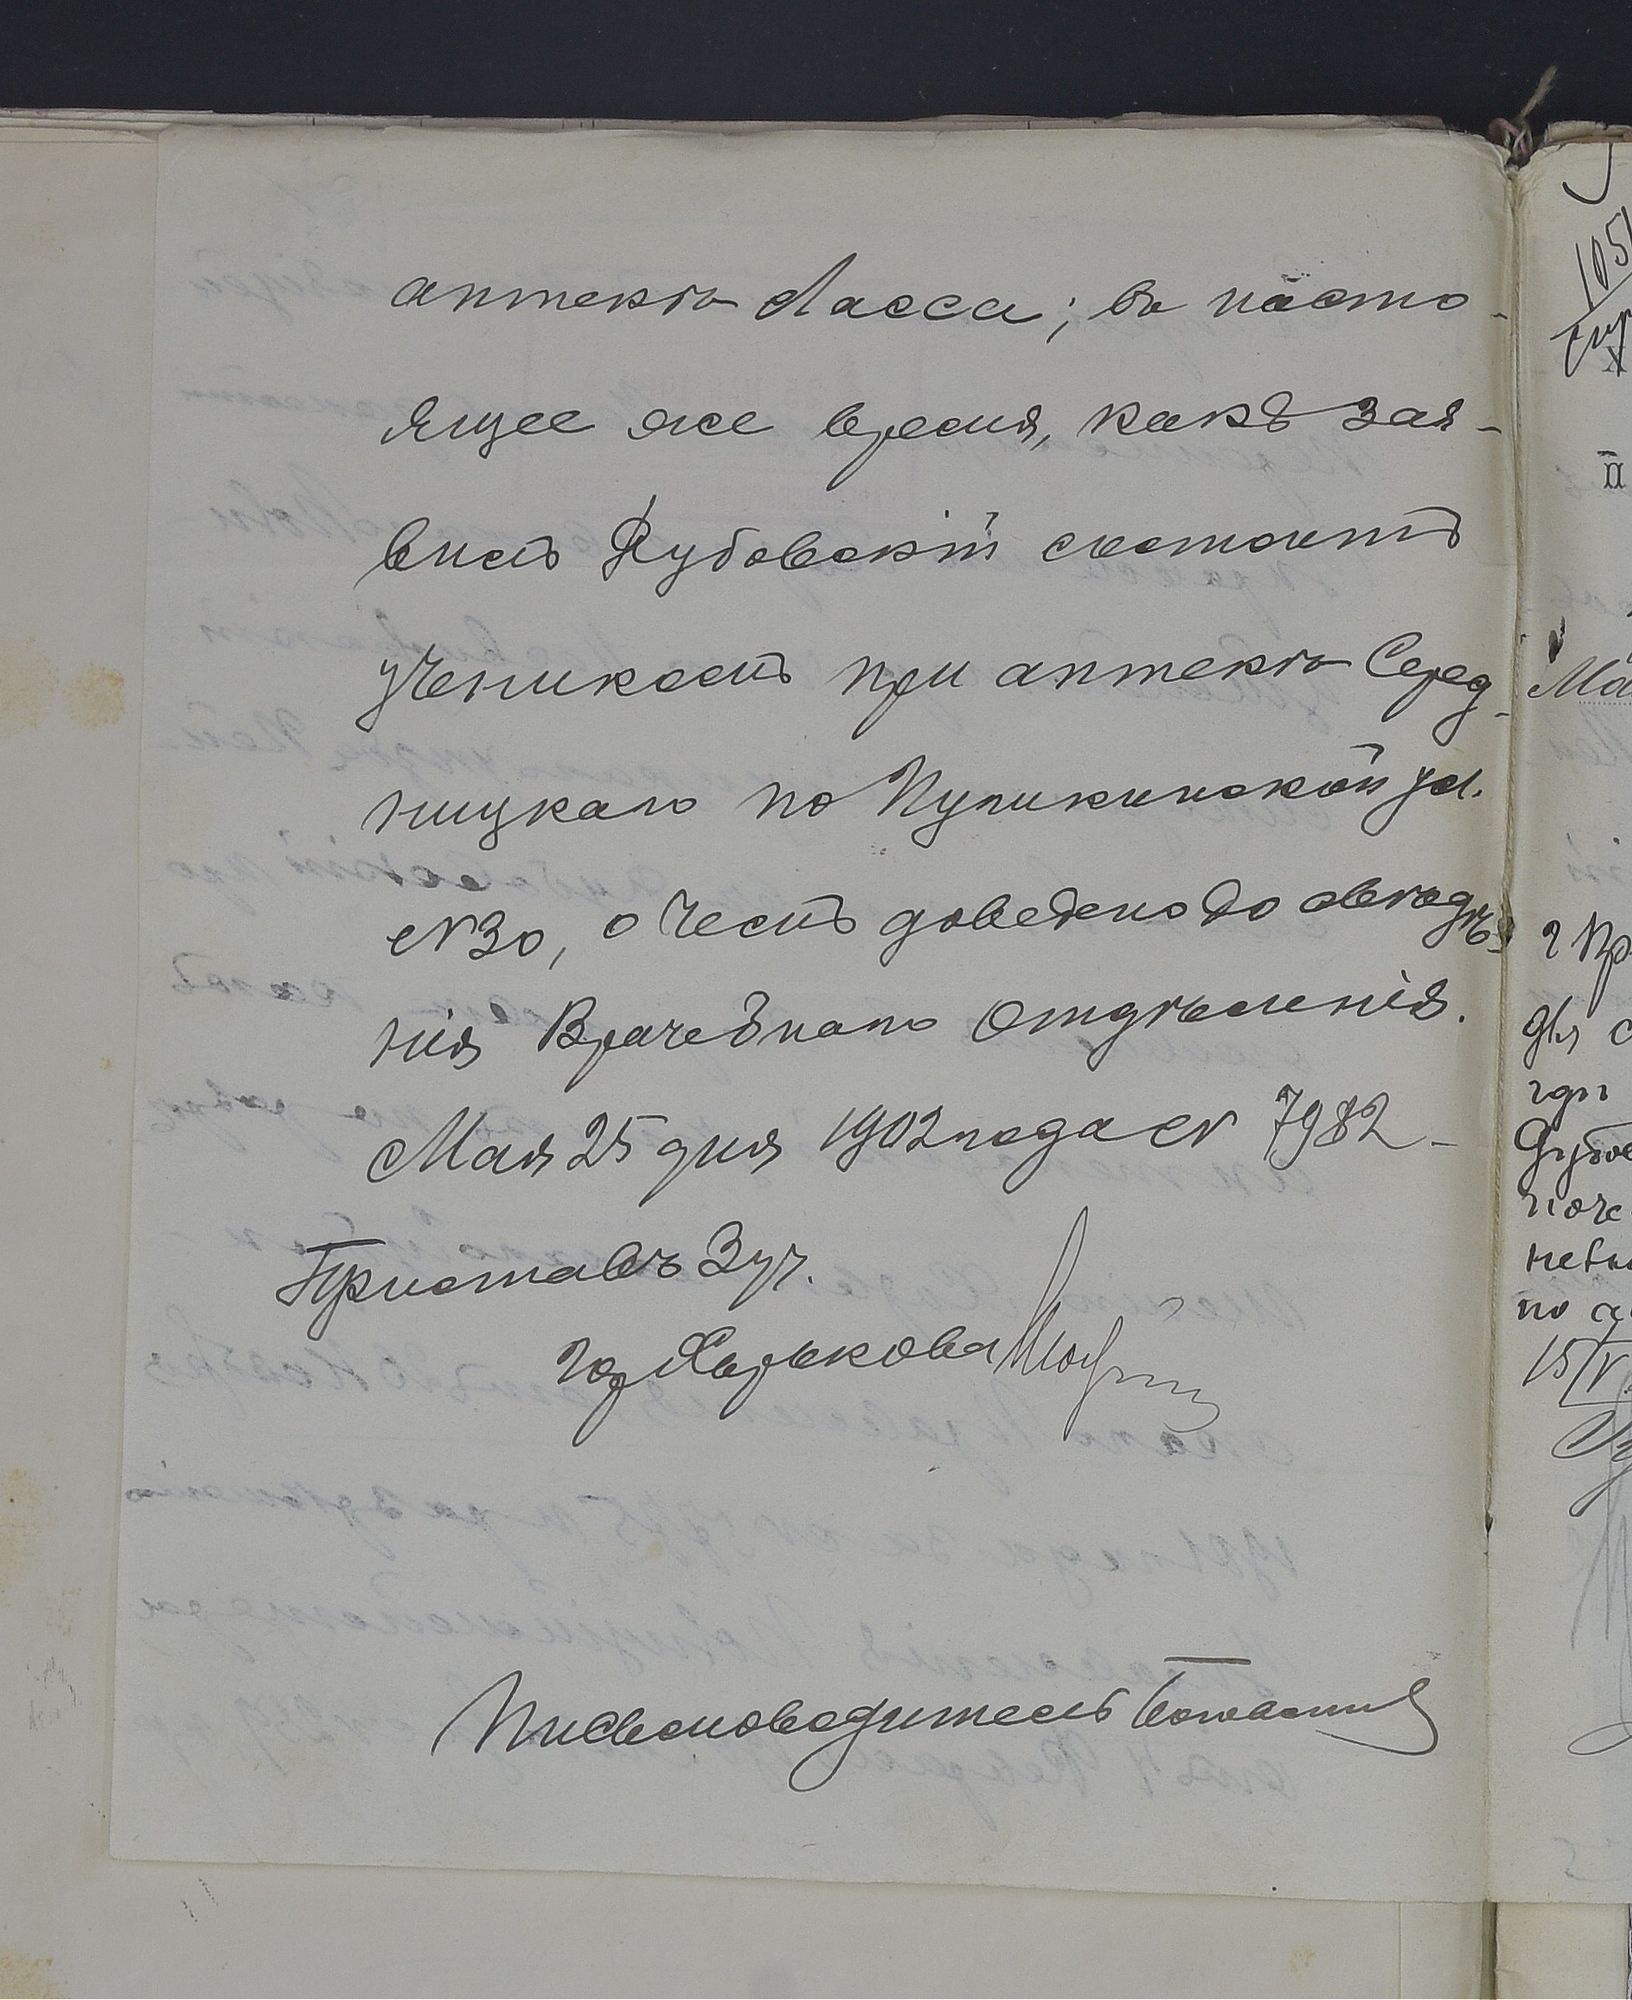 аптекѣ Ласса; въ насто-
ящее же время, какъ зая-
вилъ Дубовскій состоитъ
ученикомъ при аптекѣ Серед-
ницкаго по Пушкинской ул.
№ 30, о чемъ доведено до свѣдѣ-
нія Врачебнаго Отдѣленія.
Мая 25 дня 1902 года № 7982
Приставъ 3 уч.
гор Харькова
Письмоводитель
105
II
Дубов
15/V